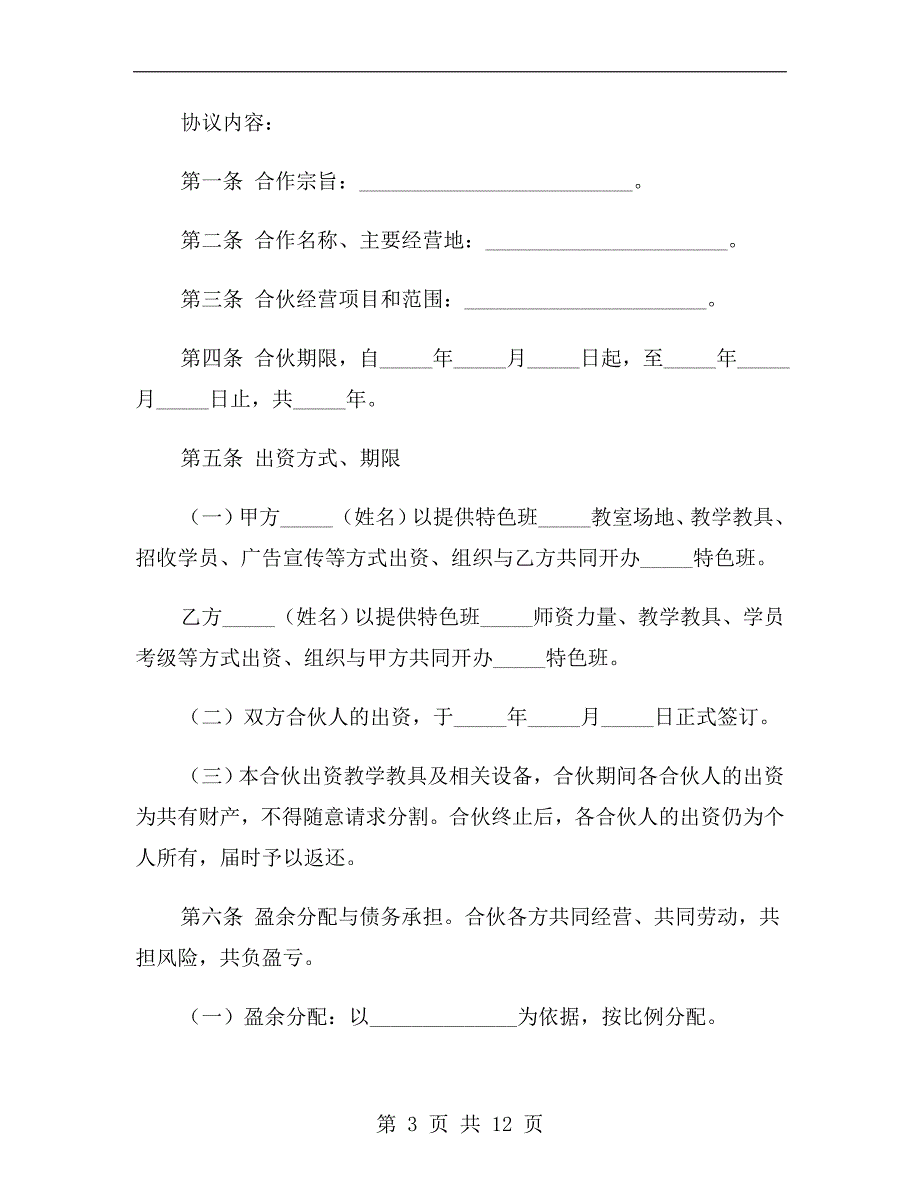 协议内容：
第一条 合作宗旨：__________________________。
第二条 合作名称、主要经营地：_______________________。
第三条 合伙经营项目和范围：_______________________。
第四条 合伙期限，自_____年_____月_____日起，至_____年_____
月_____日止，共_____年。
第五条 出资方式、期限
（一）甲方_____（姓名）以提供特色班_____教室场地、教学教具、
招收学员、广告宣传等方式出资、组织与乙方共同开办_____特色班。
乙方_____（姓名）以提供特色班_____师资力量、教学教具、学员
考级等方式出资、组织与甲方共同开办_____特色班。
（二）双方合伙人的出资，于_____年_____月_____日正式签订。
（三）本合伙出资教学教具及相关设备，合伙期间各合伙人的出资
为共有财产，不得随意请求分割。合伙终止后，各合伙人的出资仍为个
人所有，届时予以返还。
第六条 盈余分配与债务承担。合伙各方共同经营、共同劳动，共
担风险，共负盈亏。
（一）盈余分配：以______________为依据，按比例分配。
第 3 页 共 12 页